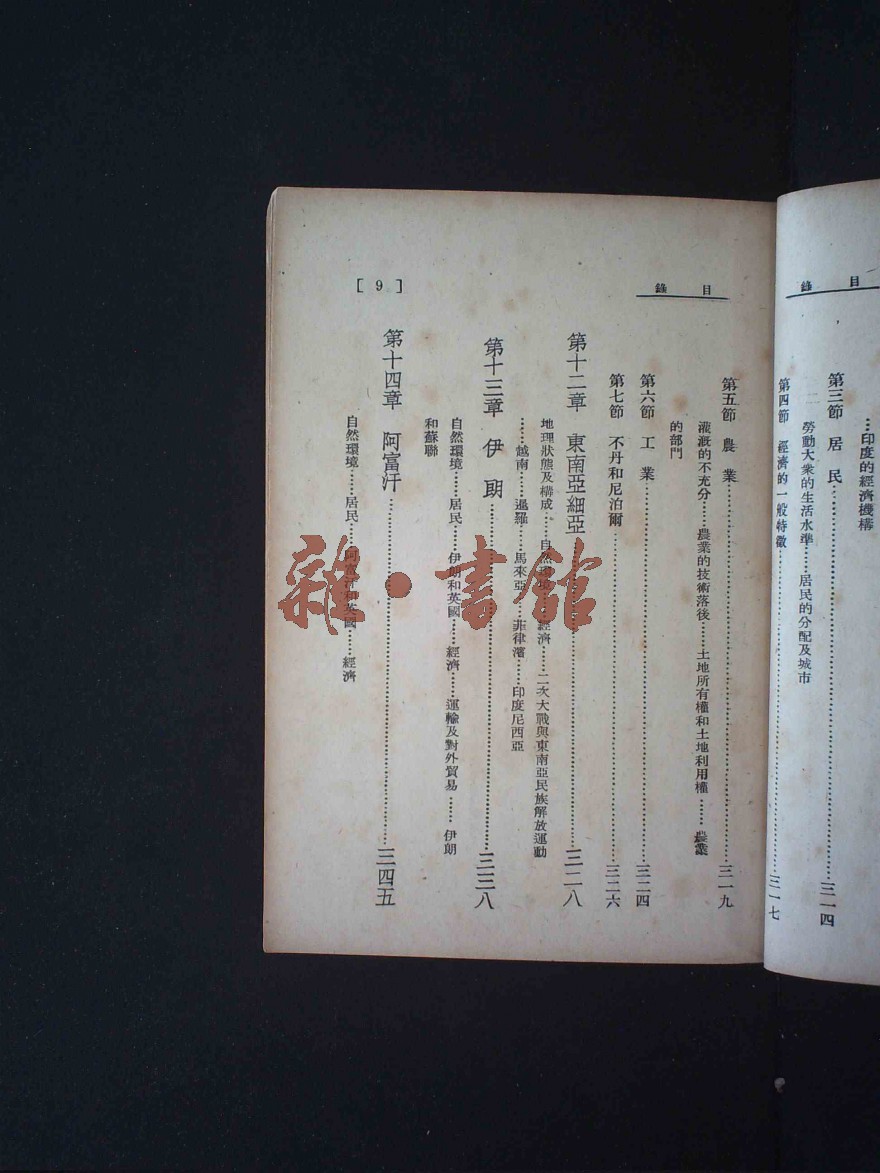 目錄
……印度的經濟機構
第三節 居民……三一四
勞動大衆的生活水準……居民的分配及城市
第四節 經濟的一般特徵……三一七
目錄
[9]
第五節 農業……三一九
灌溉的不充分……農業的技術落後……土地所有權和土地利用權……農業
的部門
第六節 工業……三二四
第七節 不丹和尼泊爾……三二六
第十二章 東南亞細亞……三二八
地理狀態及構成……自然環境……經濟……二次大戰與東南亞民族解放運動
……越南……暹羅……馬來亞……菲律濱……印度尼西亞
第十三章 伊朗……三三八
自然環境……居民……伊朗和英國……經濟……運輸及對外貿易……伊朗
和蘇聯
第十四章 阿富汗……三四五
自然環境……居民……阿富汗和英國……經濟
雜·書館